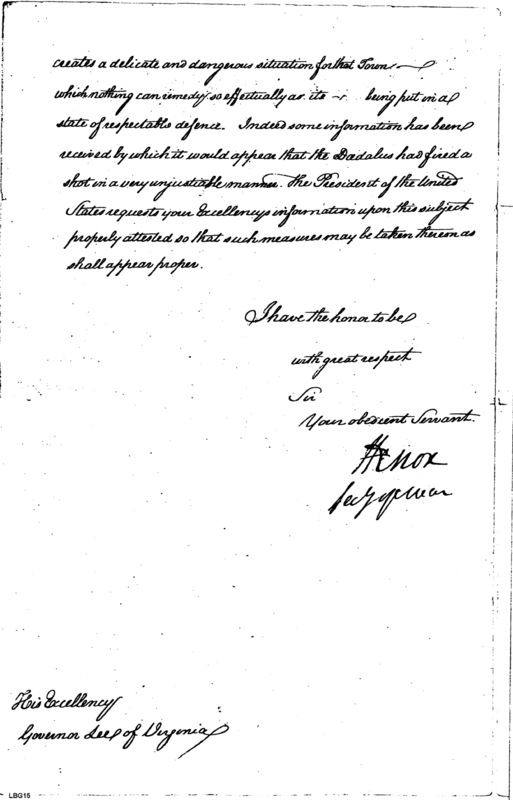 creates a delicate and dangerous situation for that Town
which nothing can remedy so effectually as its being put in a
state of respectable defence. Indeed some information has been
received by which it would appear that the Dadalus had fired a
shot in a very unjustiable manner. The President of the United
States requests your Excellencys information upon this subject
properly attested so that such measures may be taken thereon as
shall appear proper.
I have the honor to be
with great respect
Sir
Your obedient Servant.
HKnox
Secy of war
His Excellency
Governor Lee of Virginia
LBG15